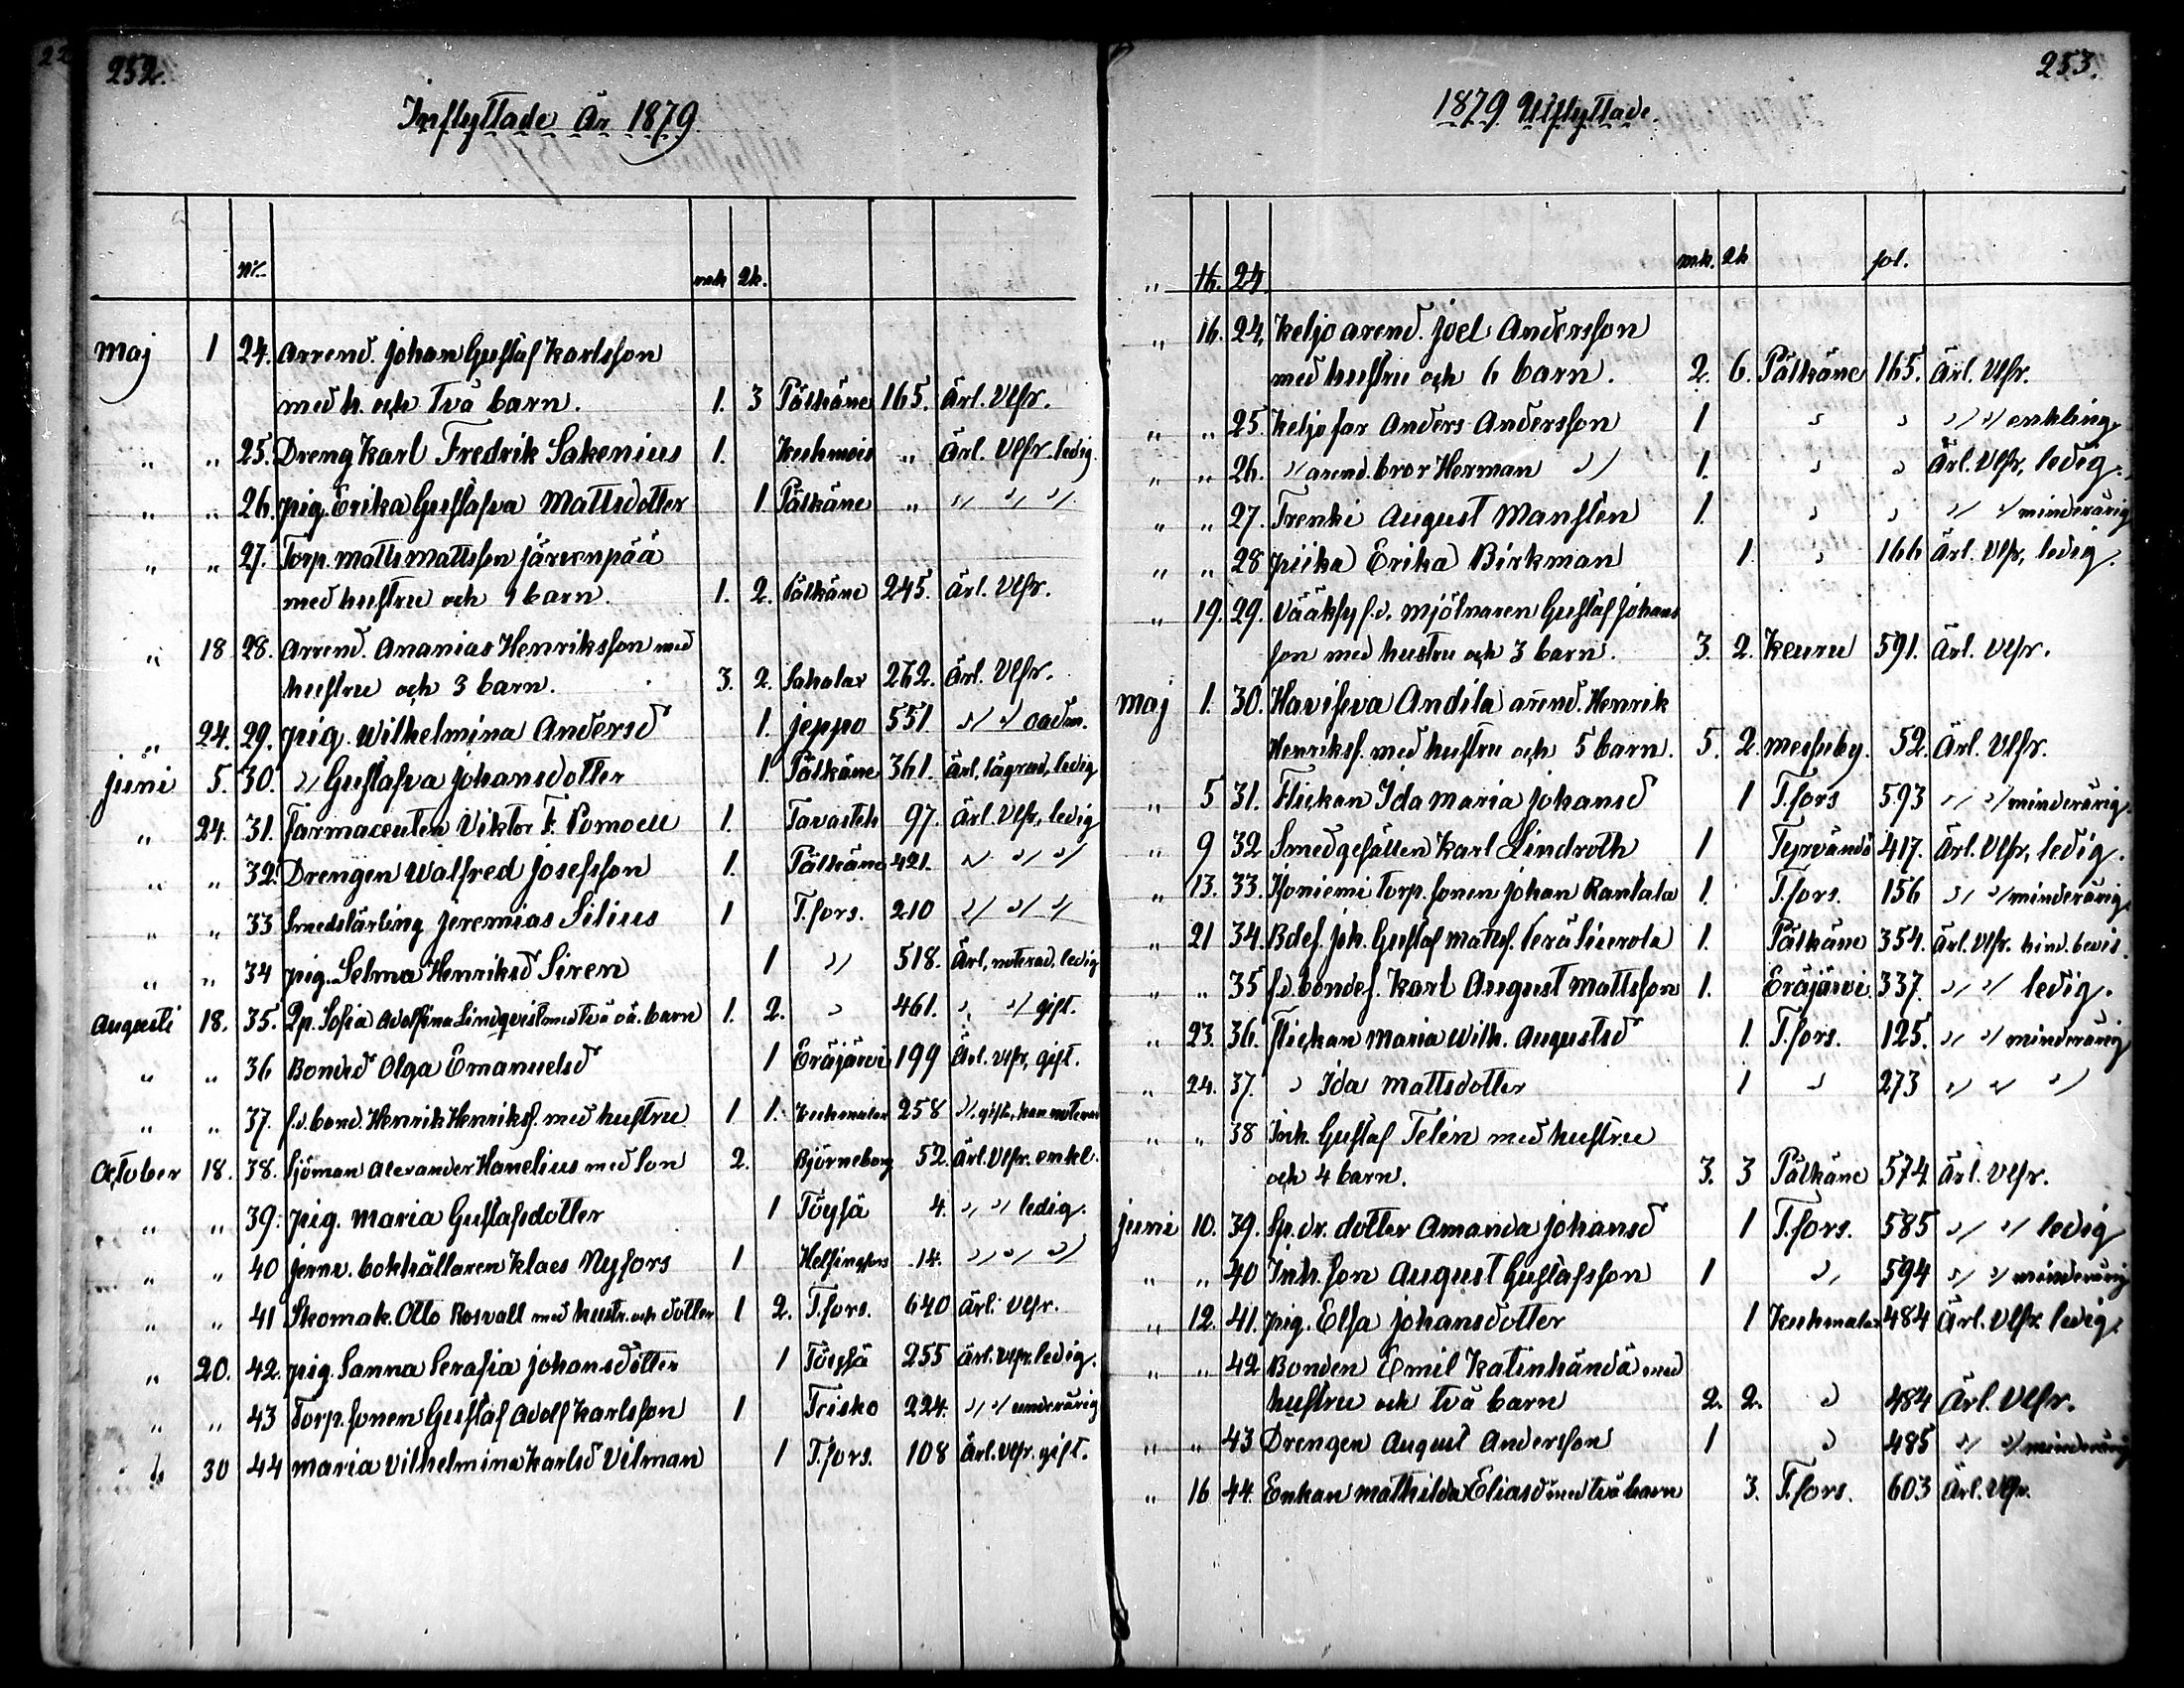 252.
Inflyttade År 1879.
No mk. Qk.
Maj 1 24. Arrend. Johan Gustaf Karlsson
med h. och två barn. 1. 3 Pälkäne 165. Ärl. Vlfr.
" " 25. Dreng Karl Fredrik Sakenius 1. " Ärl. Vlfr. ledig.
" " 26. pig. Erika Gustafva Mattsdotter 1 Pälkäne " " " "
" " 27. Torp. Matts Mattsson Järvenpää
med hustru och 1 barn. 1. 2. Pälkäne 245. Ärl. Vlfr.
" 18 28. Arrend. Ananias Henriksson med
hustru och 3 barn. 3. 2. Sahalax 262. Ärl. Vlfr.
" 24. 29. pig. Wilhelmina Andersd 1. Jeppo 551. " "
Juni 5. 30. " Gustafva Johansdotter 1. Pälkäne 361. Ärl, lägrad, ledig
" 24. 31. Farmaceuten Viktor F. Pomoell 1. Tavasteh 97. Ärl. Vlfr, ledig
" " 32. Drengen Walfred Josefsson 1. Pälkäne 421. " " "
" " 33 Smedslärling Jeremias Silius 1 T.fors. 210 " " "
" " 34 pig. Selma Henriksd Siren 1 " 518. Ärl, noterad, ledig
Augusti 18. 35. Qp. Sofia Adolfina Lindqvist med två oä. barn 1. 2. " 461. " " gift.
" " 36 Bonded Olga Emanuelsd 1 Eräjärvi 199 Ärl. Vlfr, gift.
" " 37. f.d. bond. Henrik Henriksf. med hustru 1 1. Kuhmalax 258 " gift, han noterad
October 18. 38. Sjöman Alexander Hanelius med son 2. Björneborg 52. Ärl. Vlfr. enkl.
" " 39. pig. Maria Gustafsdotter 1 Töysä 4. " " ledig.
" " 40 Jernv. bokhållaren Klaes Nyfors 1 Helsingfors 14. " " "
" " 41 Skomak. Otto Rosvall med hustr. och dotter 1 2. T.fors. 640 Ärl. Vlfr.
" 20. 42. pig. Sanna Serafia Johansdotter 1 Töysä 255 Ärl. Vlfr. ledig.
" " 43 Torp. sonen Gustaf Adolf Karlsson 1 Teisko 224. " " minderårig
" 30 44 Maria Vilhelmina Karlsd Vilman 1 T.fors. 108 Ärl. Vlfr. gift.
253.
1879 Utflyttade.
mk. Qk fol.
" 16. 24.
" 16. 24. Keljo arend. Joel Andersson
med hustru och 6 barn. 2. 6. Pälkäne 165. Ärl. Vlfr.
" " 25. Keljo far Anders Andersson 1 " " " " enkling.
" " 26. " arend. bror Herman " 1. " " Ärl. Vlfr, ledig.
" " 27. Trenki August Manstén 1. " " " " minderårig
" " 28 piika Erika Birkman 1. " 166 Ärl. Vlfr, ledig.
" 19. 29. Vääksy f.d. mjölnaren Gustaf Johans
son med hustru och 3 barn. 3. 2. Keuru 591. Ärl. Vlfr.
Maj 1. 30. Haviseva Andila arend. Henrik
Henriksf. med hustru och 5 barn. 5. 2. Messuby. 52. Ärl. Vlfr.
" 5 31. Flickan Ida Maria Johansd 1 T.fors 593 " " minderårig.
" 9 32 Smedgesällen Karl Lindroth 1 Tyrvändö 417. Ärl. Vlfr, ledig.
" 13. 33. Honiemi torp. sonen Johan Rantala 1. T.fors. 156 " " minderårig.
" 21 34. Bdes. Joh. Gustaf Mattsf. 1. Pälkäne 354. Ärl. Vlfr. hind. bevis.
" " 35 f.d. bondes. Karl August Mattsson 1. Eräjärvi 337. " " ledig.
" 23. 36. Flickan Maria Wilh. Augustsd 1. T.fors. 125. " " minderårig
" 24. 37. " Ida Mattsdotter 1 " 273 " " "
" " 38 Inh. Gustaf Telén med hustru
och 4 barn. 3. 3 Pälkäne 574 Ärl. Vlfr.
Juni 10. 39. Sp. dr. dotter Amanda Johansd 1 T.fors. 585 " " ledig
" " 40 Inh. son August Gustafsson 1 " 594 " " minderårig
" 12. 41. pig. Elsa Johansdotter 1 Kuhmalax 484 Ärl. Vlfr. ledig.
" " 42 Bonden Emil Katinhändä med
hustru och två barn 2. 2. " 484 Ärl. Vlfr.
" " 43 Drengen August Andersson 1 " 485 " " minderårig
" 16 44. Enkan Mathilda Eliasd med två barn 3. T.fors. 603 Ärl. Vlfr.